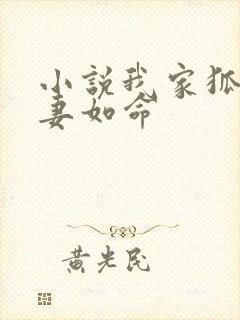 小説我家狐
妻如命
黄光民